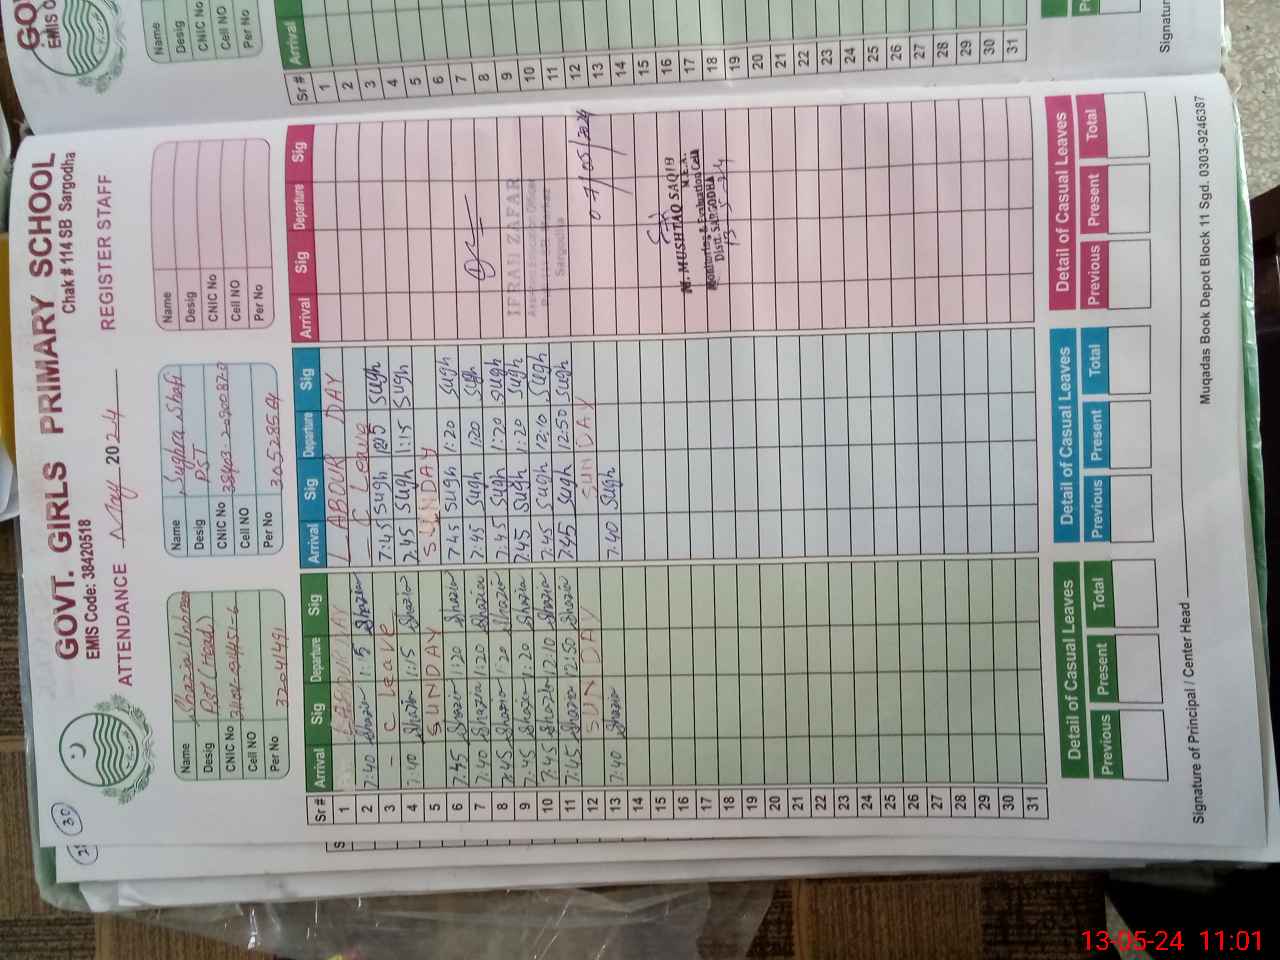 30
GOVT. GIRLS PRIMARY SCHOOL
EMIS Code: 38420518
Chak # 114 SB Sargodha
ATTENDANCE May 2024 REGISTER STAFF
Name
Desig Pst (Head)
CNIC No
Cell NO
Per No
Name Sughra Shafi
Desig PST
CNIC No
Cell NO
Per No
Name
Desig
CNIC No
Cell NO
Per No
Sr # Arrival Sig Departure Sig Arrival Sig Departure Sig Arrival Sig Departure Sig
1 LABOUR DAY LABOUR DAY
2 7:40 Shazia 1:15 Shazia - C Leave
3 - C leave 7:45 Sugh Sugh
4 7:40 Shazia 1:15 Shazia 7:45 Sugh 1:15 Sugh
5 SUNDAY SUNDAY
6 7:45 Shazia 1:20 Shazia 7:45 Sugh 1:20 Sugh
7 7:40 Shazia 1:20 Shazia 7:45 Sugh 1:20 Sugh
8 7:45 Shazia 1:20 Shazia 7:45 Sugh 1:20 Sugh
9 7:45 Shazia 1:20 Shazia 7:45 Sugh 1:20 Sugh
10 7:45 Shazia 12:10 Shazia 7:45 Sugh 12:10 Sugh
11 7:45 Shazia 12:50 Shazia 7:45 Sugh 12:50 Sugh
12 SUNDAY SUNDAY
13 7:40 Shazia 7:40 Sugh
14
15
16
17
18
19
20
21
22
23
24
25
26
27
28
29
30
31
IFRAH ZAFAR
Sargodha
07/05/2024
M. MUSHTAQ SAQIB
M.E.A.
Monitoring & Evaluation Cell
Distt. SARGODHA
13-5-24
Detail of Casual Leaves Detail of Casual Leaves Detail of Casual Leaves
Previous Present Total Previous Present Total Previous Present Total
Signature of Principal / Center Head
Muqadas Book Depot Block 11 Sgd. 0303-9246387
GOV
EMIS C
Name
Desig
CNIC No
Cell NO
Per No
Sr # Arrival
1
2
3
4
5
6
7
8
9
10
11
12
13
14
15
16
17
18
19
20
21
22
23
24
25
26
27
28
29
30
31
Signature
13-05-24 11:01